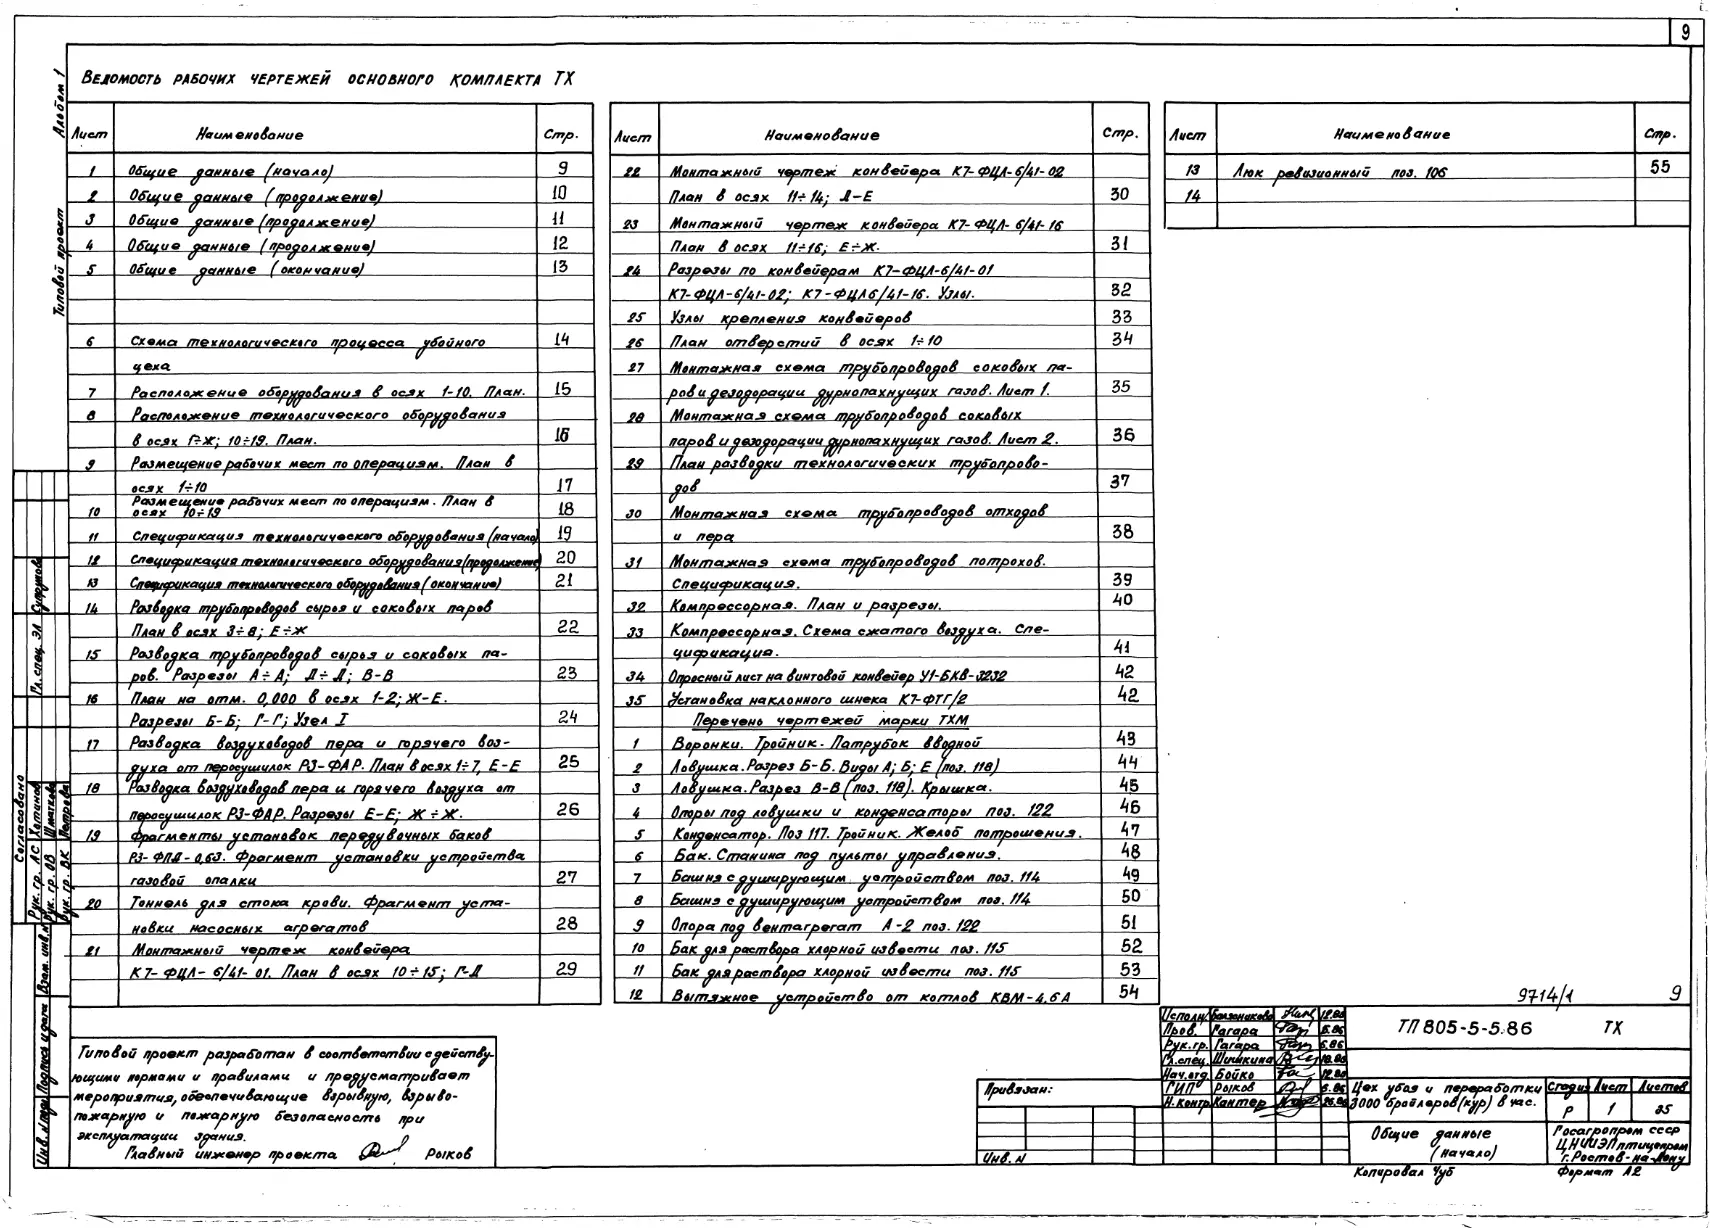 9
Ведомость рабочих чертежей основного комплекта ТХ
Альбом 1
Типовой проект
Лист Наименование Стр.
1 Общие данные (начало) 9
2 Общие данные (продолжение) 10
3 Общие данные (продолжение) 11
4 Общие данные (продолжение) 12
5 Общие данные (окончание) 13
6 Схема технологического процесса убойного
цеха 14
7 Расположение оборудования в осях 1-10. План. 15
8 Расположение технологического оборудования
в осях Г÷Ж; 10÷19. План. 16
9 Размещение рабочих мест по операциям. План в
осях 1÷10 17
10 Размещение рабочих мест по операциям. План в
осях 10÷19 18
11 Спецификация технологического оборудования (начало) 19
12 Спецификация технологического оборудования (продолжение) 20
13 Спецификация технологического оборудования (окончание) 21
14 Разводка трубопроводов сырья и соковых паров
План в осях 3÷8; Е÷Ж 22
15 Разводка трубопроводов сырья и соковых па-
ров. Разрезы А÷А; Д÷Д; В-В 23
16 План на отм. 0,000 в осях 1-2; Ж-Е.
Разрезы Б-Б; Г-Г; Узел I 24
17 Разводка воздуховодов пера и горячего воз-
духа от перосушилок РЗ-ФАР. План в осях 1÷7, Е-Е 25
18 Разводка воздуховодов пера и горячего воздуха от
перосушилок РЗ-ФАР. Разрезы Е-Е; Ж÷Ж. 26
19 Фрагменты установок передувочных баков
РЗ-ФПД-0,63. Фрагмент установки устройства
газовой опалки 27
20 Тоннель для стока крови. Фрагмент уста-
новки насосных агрегатов 28
21 Монтажный чертеж конвейера
К7-ФЦЛ-6/41-01. План в осях 10÷15; Г-Д 29
Лист Наименование Стр.
22 Монтажный чертеж конвейера К7-ФЦЛ-6/41-02
План в осях 11÷14; Д-Е 30
23 Монтажный чертеж конвейера К7-ФЦЛ-6/41-16
План в осях 11÷16; Е÷Ж. 31
24 Разрезы по конвейерам К7-ФЦЛ-6/41-01
К7-ФЦЛ-6/41-02; К7-ФЦЛ6/41-16. Узлы. 32
25 Узлы крепления конвейеров 33
26 План отверстий в осях 1÷10 34
27 Монтажная схема трубопроводов соковых па-
ров и дезодорации дурнопахнущих газов. Лист 1. 35
28 Монтажная схема трубопроводов соковых
паров и дезодорации дурнопахнущих газов. Лист 2. 36
29 План разводки технологических трубопрово-
дов 37
30 Монтажная схема трубопроводов отходов
и пера 38
31 Монтажная схема трубопроводов потрохов.
Спецификация. 39
32 Компрессорная. План и разрезы. 40
33 Компрессорная. Схема сжатого воздуха. Спе-
цификация. 41
34 Опросный лист на винтовой конвейер У1-БКВ-3232 42
35 Установка наклонного шнека К7-ФТГ/2 42
Перечень чертежей марки ТХМ
1 Воронки. Тройник. Патрубок вводной 43
2 Ловушка. Разрез Б-Б. Виды А; Б; Е (поз. 118) 44
3 Ловушка. Разрез В-В (поз. 118). Крышка. 45
4 Опоры под ловушки и конденсаторы поз. 122 46
5 Конденсатор. Поз 117. Тройник. Желоб потрошения. 47
6 Бак. Станина под пульты управления. 48
7 Башня с душирующим устройством поз. 114 49
8 Башня с душирующим устройством поз. 114 50
9 Опора под вентагрегат А-2 поз. 122 51
10 Бак для раствора хлорной извести поз. 115 52
11 Бак для раствора хлорной извести поз. 115 53
12 Вытяжное устройство от котлов КВМ-4.6А 54
Лист Наименование Стр.
13 Люк ревизионный поз. 106 55
14
Согласовано
Гл. спец. ЭЛ Супрунова
Рук. гр. АС Хотинов
Рук. гр. ОВ Шматкова
Рук. гр. ВК Петрова
Взам. инв. №
Подпись и дата
Инв. № подл.
Типовой проект разработан в соответствии с действу-
ющими нормами и правилами и предусматривает
мероприятия, обеспечивающие взрывную, взрыво-
пожарную и пожарную безопасность при
эксплуатации здания.
Главный инженер проекта Рыков
9714/1 9
Исполн. 12.86
Пров. Гагара 6.86
Рук. гр. Гагара 6.86
Гл. спец. Шишкина
Нач. отд. Бойко 12.86
ГИП Рыков 6.86
Н. контр. Кантер
ТП 805-5-5.86 ТХ
Привязан:
Инв. №
Цех убоя и переработки
3000 бройлеров (кур) в час.
Стадия Лист Листов
Р 1 35
Общие данные
(начало)
Госагропром СССР
ЦНИИЭПптицепром
г. Ростов-на-Дону
Копировал Чуб Формат А2